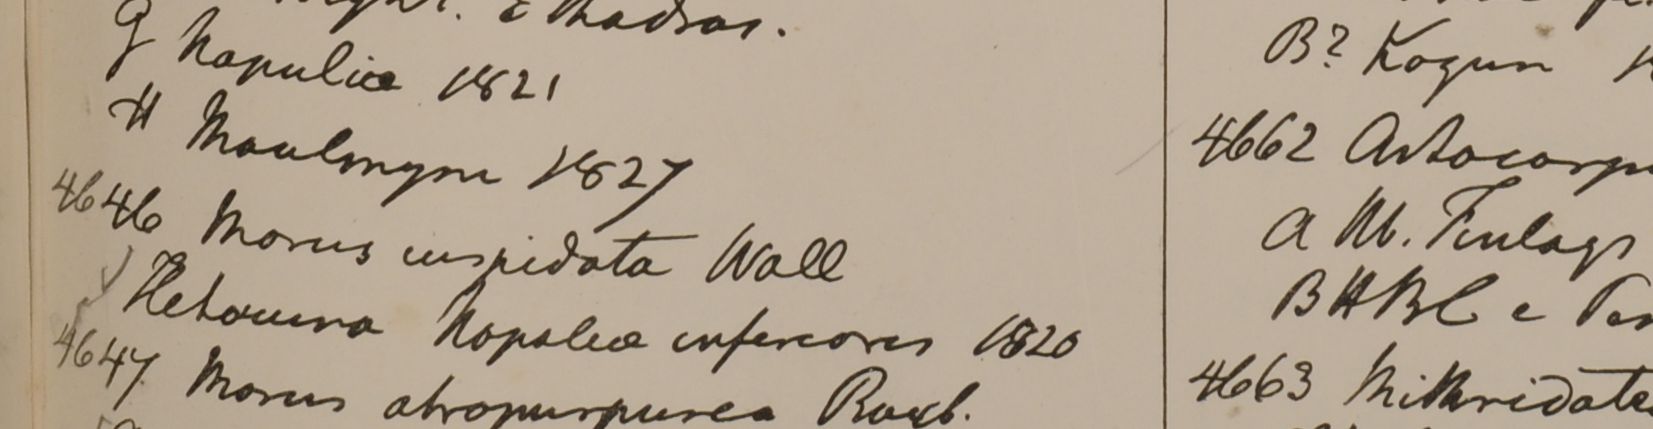 Wight. E Madras.
G Napulia 1821
H Moulmyne 1827
4646 Morus cuspidata Wall
Hetounra Nopalea inferiores 1820
4647 Morus atropurpurea Roxb.
B? Kogun
4662 Artocarp
a M. Finlays
B HBC e
4663 Mithridate